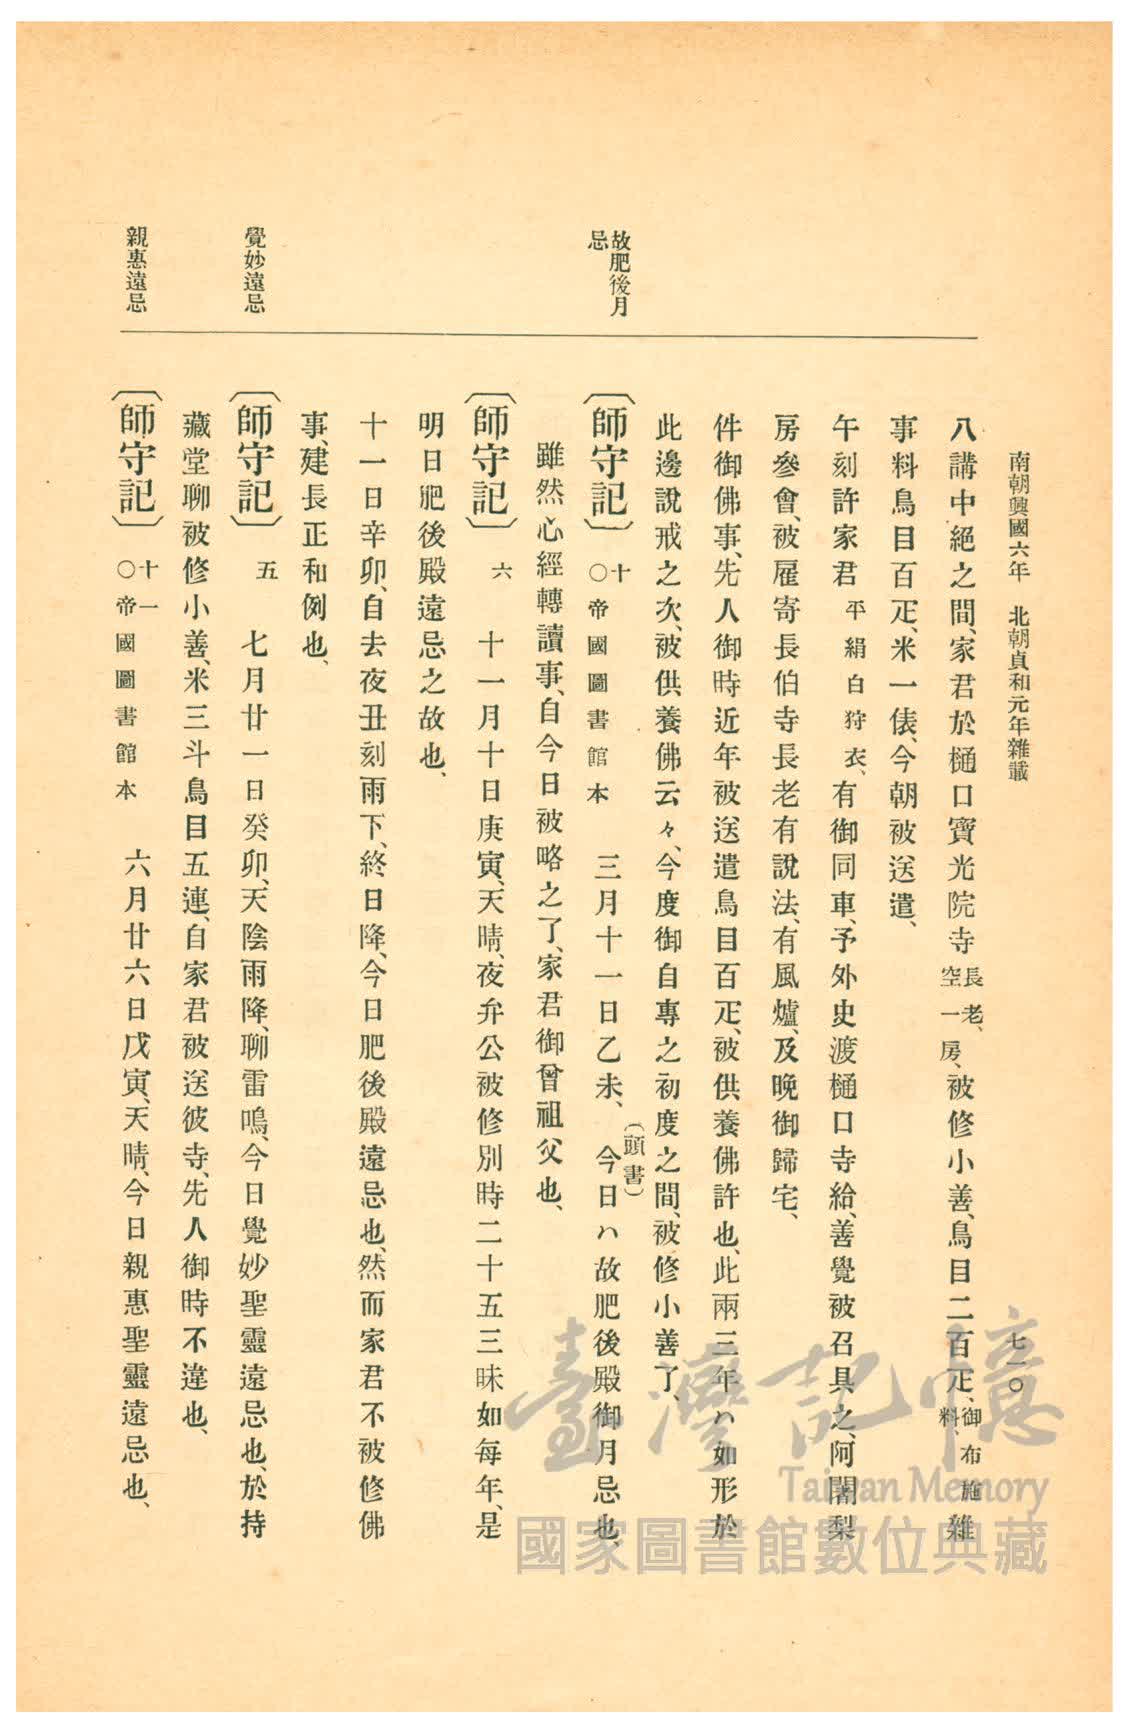 南朝興國六年　北朝貞和元年雜載
七一〇
八講中絕之間、家君於樋口寶光院寺長老、空一房、被修小善、鳥目二百疋、御布施料、雜
事料鳥目百疋、米一俵、今朝被送遣、
午刻許家君平絹白狩衣、有御同車、予外史渡樋口寺給、善覺被召具之、阿闍梨
房參會、被雇寄長伯寺長老有說法、有風爐、及晚御歸宅、
件御佛事、先人御時近年被送遣鳥目百疋、被供養佛許也、此兩三年ハ如形於
此邊說戒之次、被供養佛云々、今度御自專之初度之間、被修小善了、
故肥後月忌
〔師守記〕十〇帝國圖書館本　三月十一日乙未、（頭書）今日ハ故肥後殿御月忌也、
雖然心經轉讀事、自今日被略之了、家君御曾祖父也、
〔師守記〕六　十一月十日庚寅、天晴、夜弁公被修別時二十五三昧如每年、是
明日肥後殿遠忌之故也、
十一日辛卯、自去夜丑刻雨下、終日降、今日肥後殿遠忌也、然而家君不被修佛
事、建長正和例也、
覺妙遠忌
〔師守記〕五　七月廿一日癸卯、天陰雨降、聊雷鳴、今日覺妙聖靈遠忌也、於持
藏堂聊被修小善、米三斗鳥目五連、自家君被送彼寺、先人御時不違也、
親惠遠忌
〔師守記〕十一〇帝國圖書館本　六月廿六日戊寅、天晴、今日親惠聖靈遠忌也、
臺灣記憶
Taiwan Memory
國家圖書館數位典藏